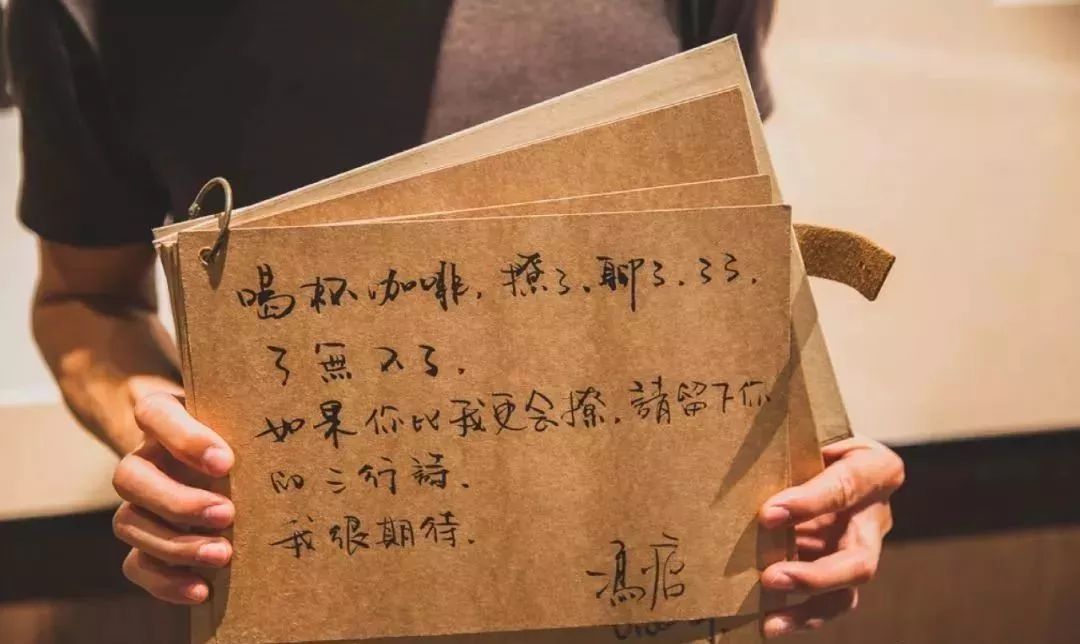 喝杯咖啡.撩了.聊了.了了.
了無不了.
如果你比我更会撩.請留下你
的三行詩.
我很期待.
馮唐